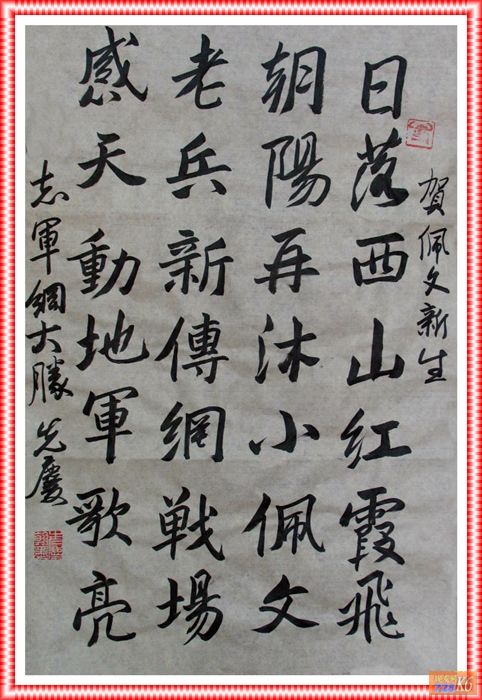 賀佩文新生
日落西山红霞飛
朝陽再沐小佩文
老兵新傳網戦場
感天動地軍歌亮
志軍網大勝先
K6